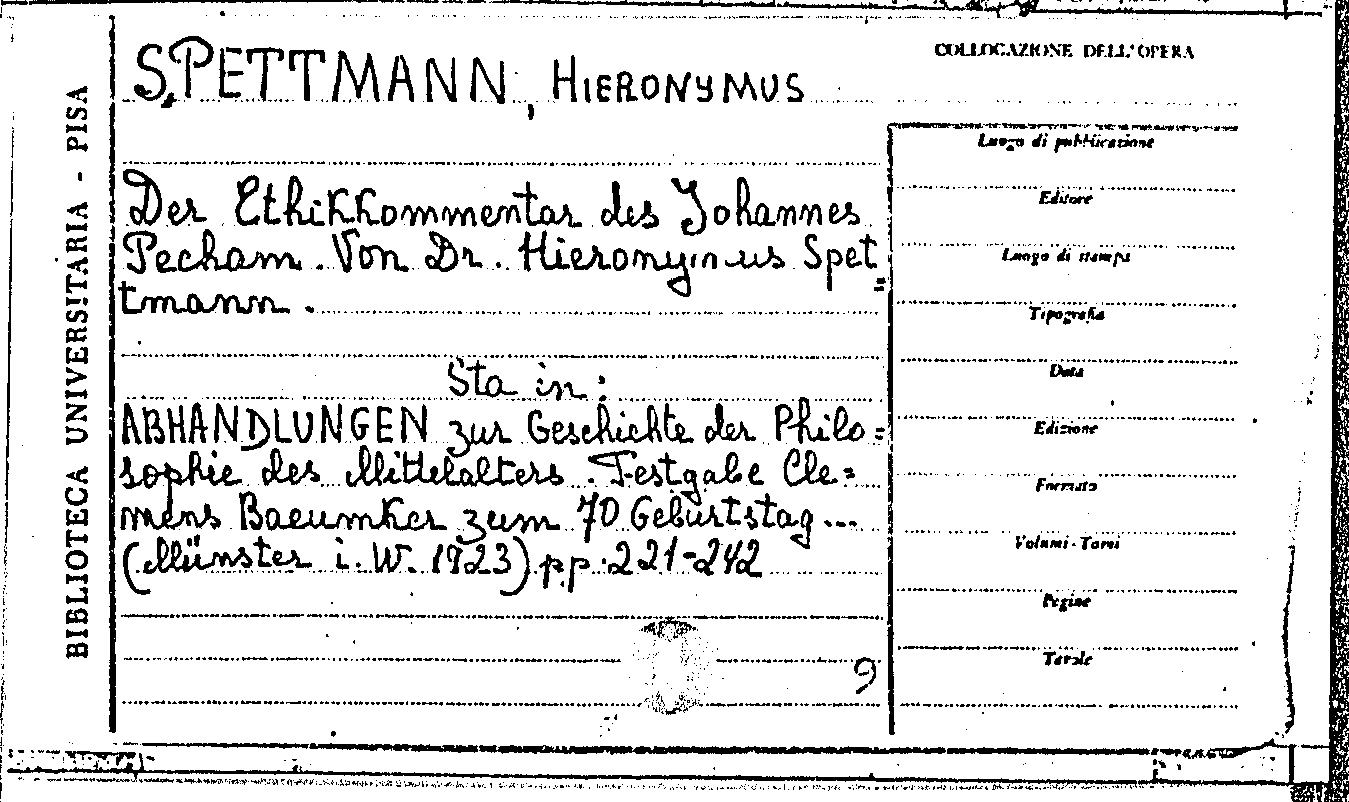 SPETTMANN, HIERONYMUS
Der Ethikkommentar des Johannes
Pecham. Von Dr. Hieronymus Spet=
tmann.
Sta in:
ABHANDLUNGEN zur Geschichte der Philo=
sophie des Mittelalters. Festgabe Cle=
mens Baeumker zum 70 Geburtstag...
(Münster i. W. 1923) pp. 221-242
9
BIBLIOTECA UNIVERSITARIA - PISA
COLLOCAZIONE DELL'OPERA
Luogo di pubblicazione
Editore
Luogo di stampa
Tipografia
Data
Edizione
Formato
Volumi - Tomi
Pagine
Tavole